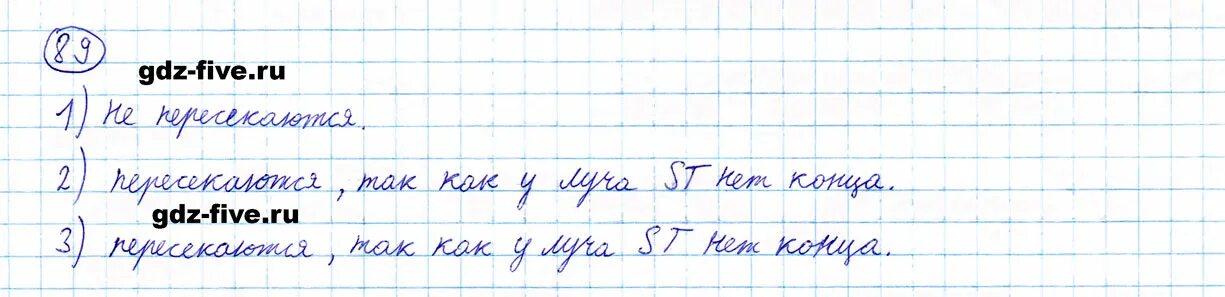 89
gdz-five.ru
1) Не пересекаются.
2) пересекаются, так как у луча ST нет конца.
gdz-five.ru
3) пересекаются, так как у луча ST нет конца.